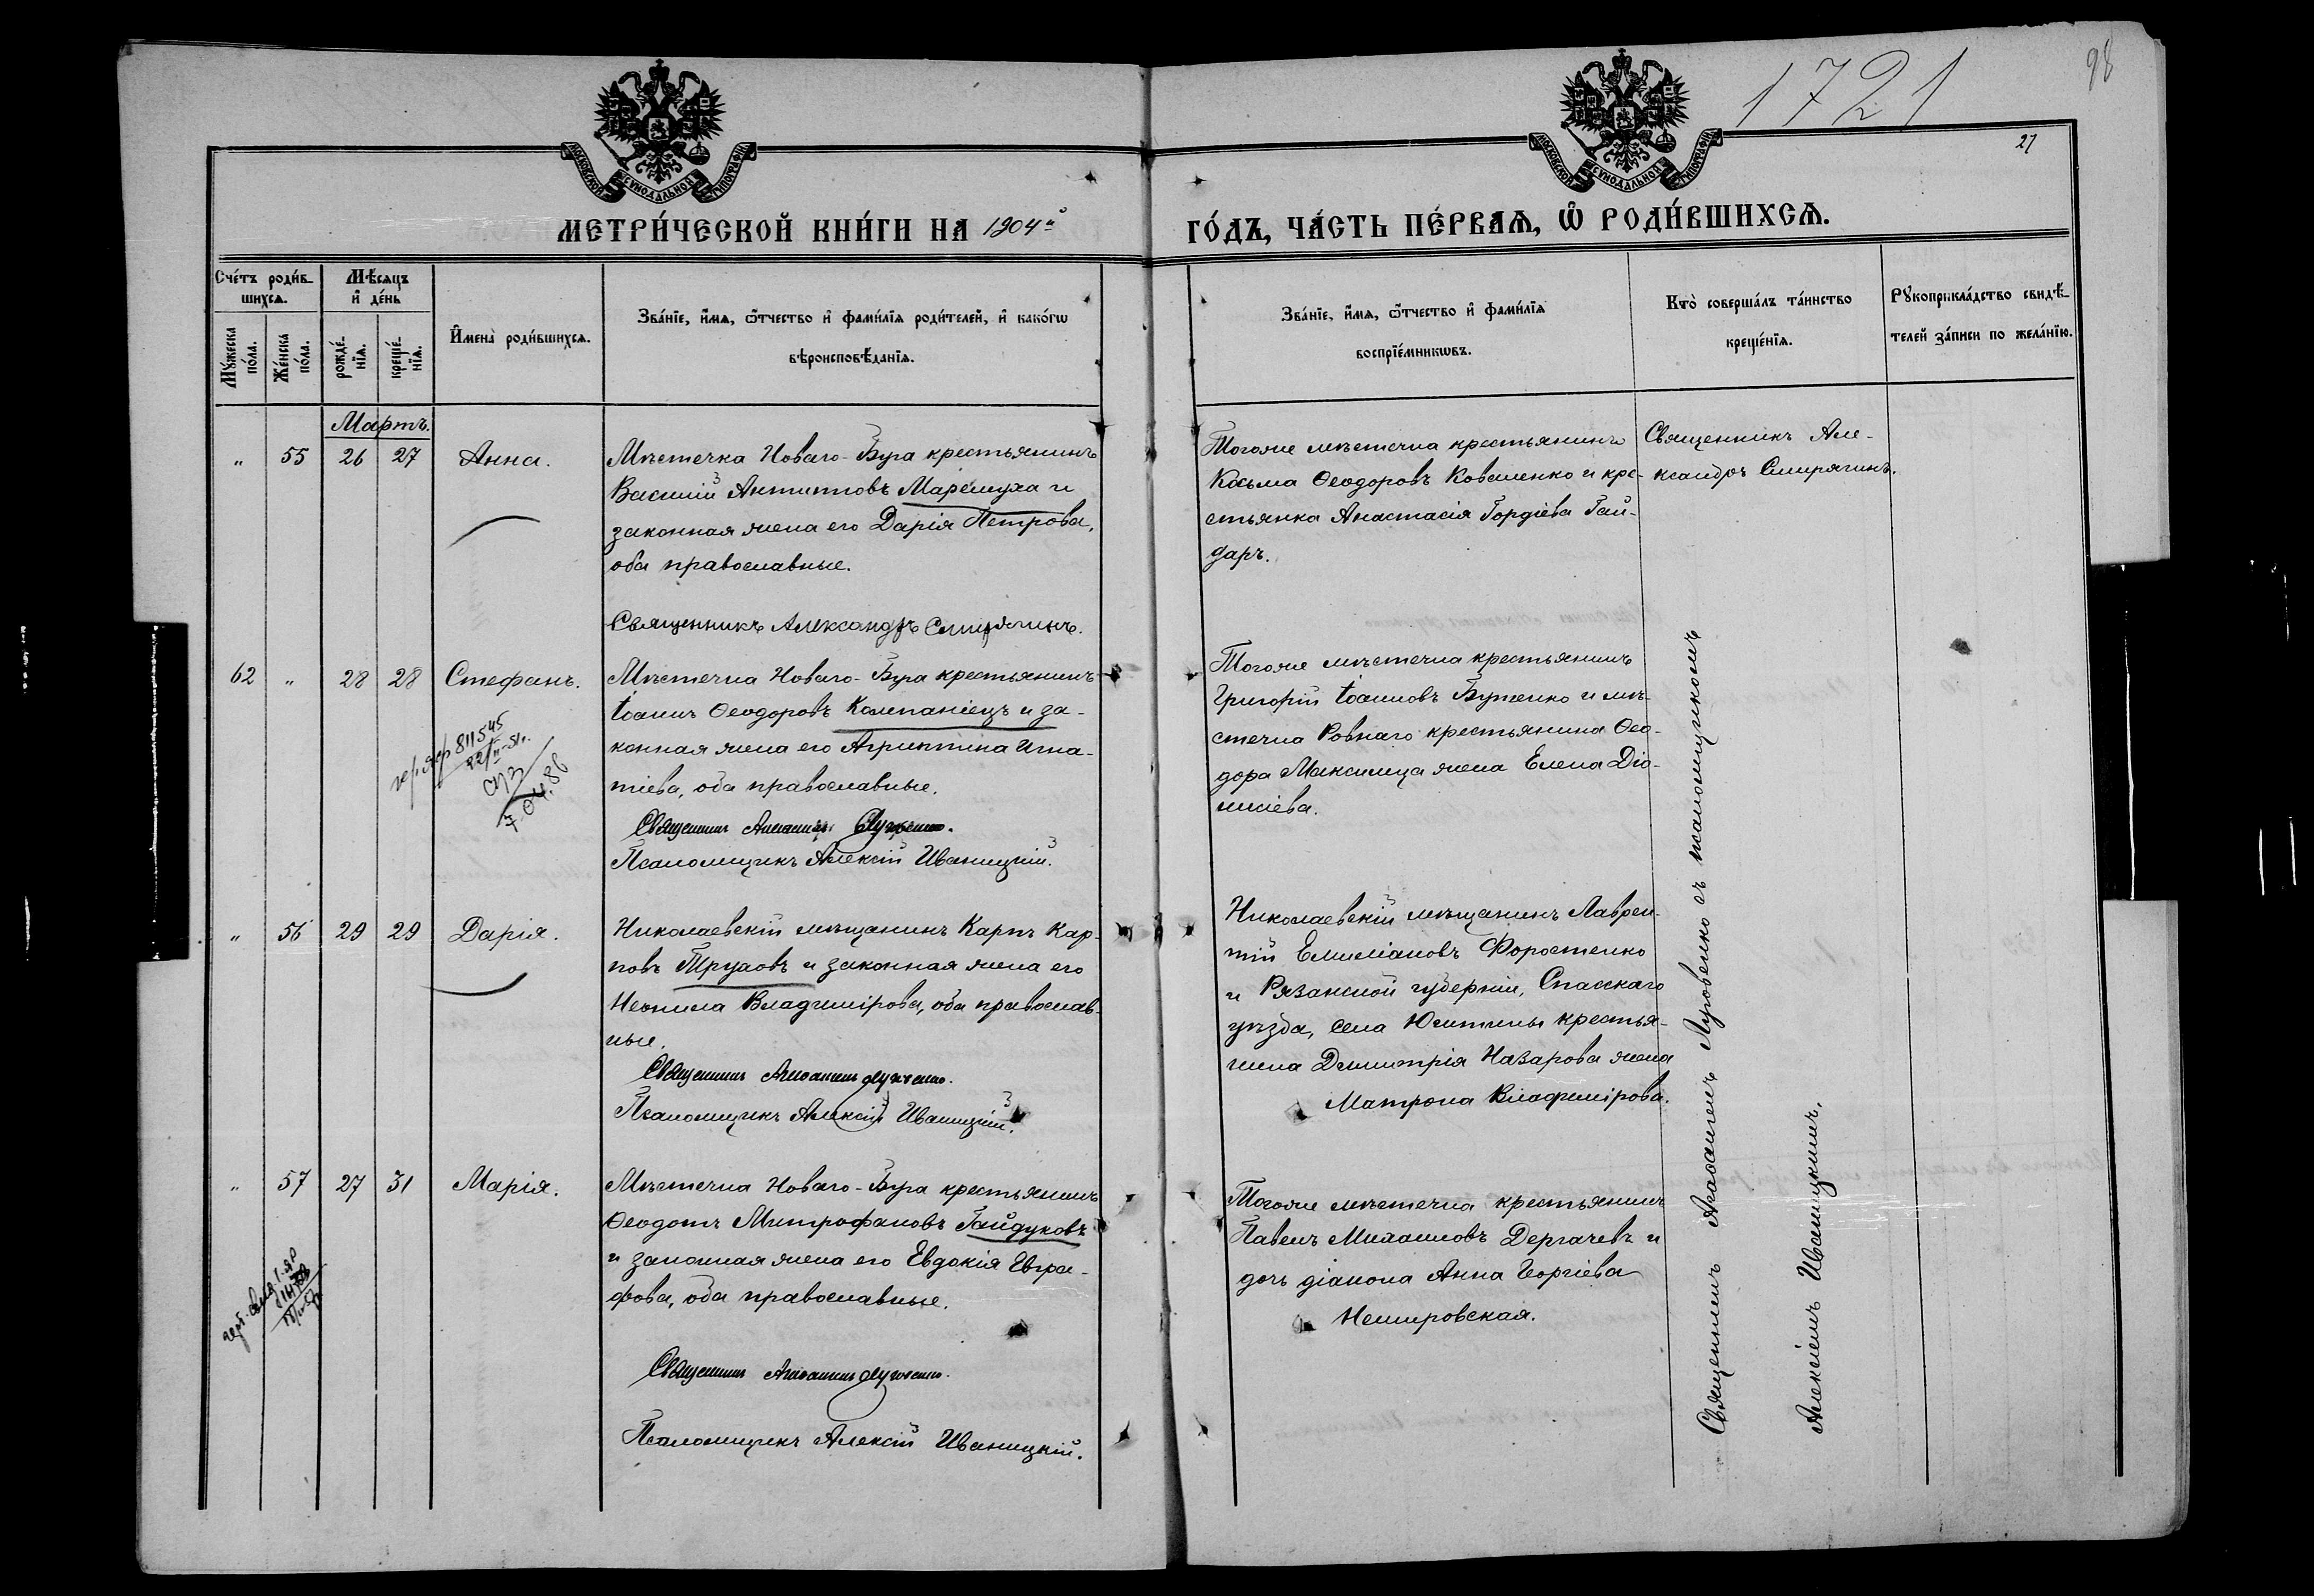 1721
98
27
МОСКОВСКОЙ СѴНОДАЛЬНОЙ ТИПОГРАФІИ
МОСКОВСКОЙ СѴНОДАЛЬНОЙ ТИПОГРАФІИ
МЕТРИ́ЧЕСКОЙ КНИ́ГИ НА 1904й
ГО́ДЪ, ЧА́СТЬ ПЕ́РВАѦ, Ѡ҆ РОДИ́ВШИХСѦ.
Сче́тъ роди́в-
шихсѧ.
Мꙋ́жеска по́ла.
Же́нска по́ла.
Мѣ́сѧцъ
и҆ де́нь
рожде́-нїѧ.
креще́-нїѧ.
И҆мена̀ роди́вшихсѧ.
Зва́нїе, и҆́мѧ, ѻ҆́тчество и҆ фами́лїѧ роди́телей, и҆ како́гѡ
вѣроисповѣ́данїѧ.
Зва́нїе, и҆́мѧ, ѻ҆́тчество и҆ фами́лїѧ
воспрїе́мникѡвъ.
Кто̀ соверша́лъ та́инство
креще́нїѧ.
Рꙋкоприкла́дство свидѣ́-
телей за́писи по жела́нїю.
Мартъ.
" 55 26 27 Анна.
Мѣстечка Новаго-Буга крестьянинъ
Василій Антиповъ Маремуха и
законная жена его Дарія Петрова,
оба православные.
Священникъ Александръ Смирягинъ.
Тогоже мѣстечка крестьянинъ
Косьма Ѳеодоровъ Коваленко и кре-
стьянка Анастасія Гордіева Гай-
даръ.
Священникъ Але-
ксандръ Смирягинъ.
62 " 28 28 Стефанъ.
811545
Мѣстечка Новаго-Буга крестьянинъ
Іоаннъ Ѳеодоровъ Компаніецъ и за-
конная жена его Агриппина Игна-
тіева, оба православные.
Священникъ
Псаломщикъ Алексій Иваницкій.
Тогоже мѣстечка крестьянинъ
Григорій Іоанновъ Бутенко и мѣ-
стечка Ровнаго крестьянина Ѳео-
дора Максимца жена Елена Діо-
нисіева.
" 56 29 29 Дарія.
Николаевскій мѣщанинъ Карпъ Кар-
повъ Трусовъ и законная жена его
Неонила Владимірова, оба православ-
ные.
Священникъ
Псаломщикъ Алексій Иваницкій.
Николаевскій мѣщанинъ Лаврен-
тій Емиліановъ Форостенко
и Рязанской губерніи, Спасскаго
уѣзда, села крестья-
нина Димитрія Назарова жена
Матрона Владимірова.
" 57 27 31 Марія.
Мѣстечка Новаго-Буга крестьянинъ
Ѳеодотъ Митрофановъ Гайдуковъ
и законная жена его Евдокія Евгра-
фова, оба православные.
Священникъ
Псаломщикъ Алексій Иваницкій.
Тогоже мѣстечка крестьянинъ
Павелъ Михаиловъ Дергачевъ и
дочь діакона Анна Георгіева
Немировская.
Священникъ съ псаломщикомъ
Алексіемъ Иваницкимъ.